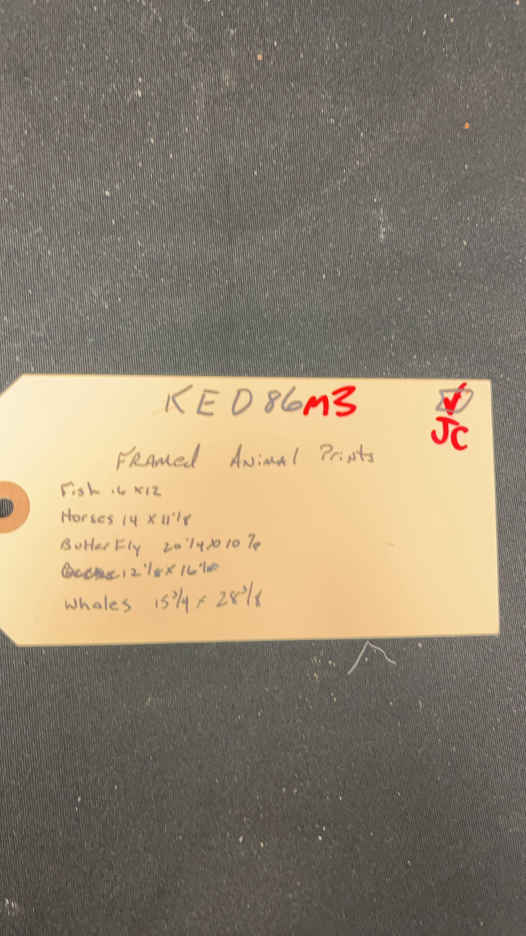 KED86M3
JC
FRAMed ANiMAl Prints
Fish 16 x 12
Horses 14 x 11 1/8
Butter Fly 20 1/4 x 10
12 1/8 x 16
Whales 15 3/4 x 28 3/8